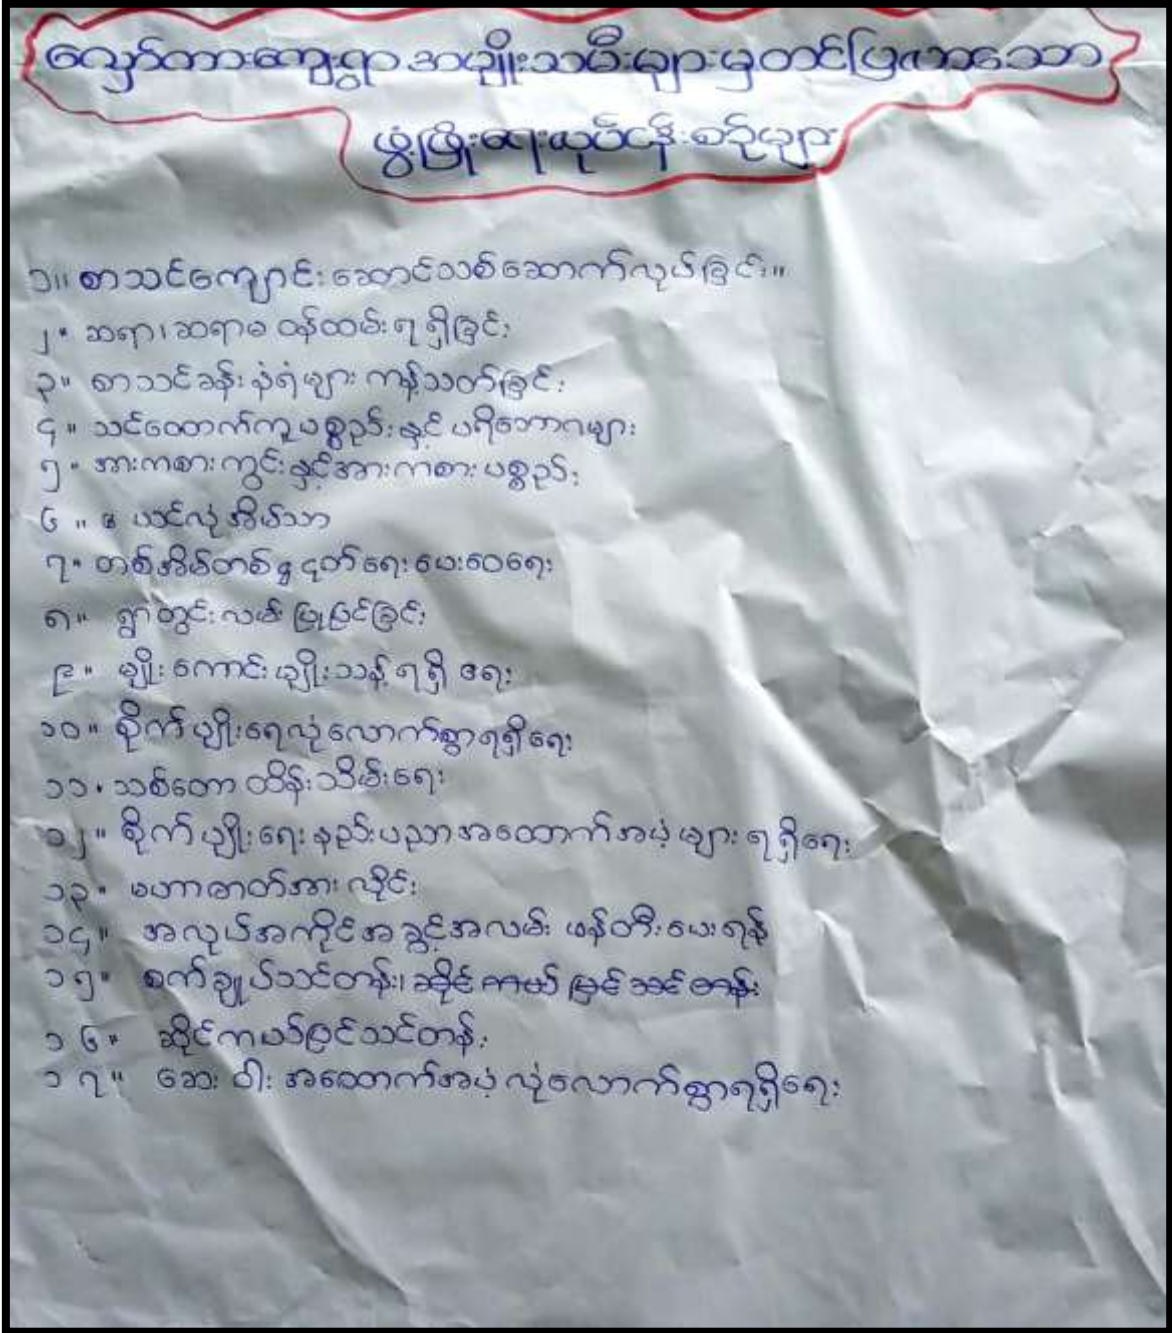 လျှော်တားကျေးရွာ အမျိုးသမီးများမှတင်ပြလာသော
ဖွံ့ဖြိုးရေးလုပ်ငန်းစဉ်များ
၁။ စာသင်ကျောင်းဆောင်သစ်ဆောက်လုပ်ခြင်း။
၂။ ဆရာ၊ဆရာမ ဝန်ထမ်းရရှိခြင်း
၃။ စာသင်ခန်းနံရံများ ကန့်သတ်ခြင်း
၄။ သင်ထောက်ကူပစ္စည်းနှင့် ပရိဘောဂများ
၅။ အားကစားကွင်းနှင့်အားကစားပစ္စည်း
၆။ ယင်လုံအိမ်သာ
၇။ တစ်အိမ်တစ် ရေးပေးဝေရေး
၈။ ရွာတွင်းလမ်းပြုပြင်ခြင်း
၉။ မျိုးကောင်းမျိုးသန့်ရရှိရေး
၁၀။ စိုက်ပျိုးရေလုံလောက်စွာရရှိရေး
၁၁။ သစ်တောထိန်းသိမ်းရေး
၁၂။ စိုက်ပျိုးရေးနည်းပညာအထောက်အပံ့များ ရရှိရေး
၁၃။ မဟာဓာတ်အားလိုင်း
၁၄။ အလုပ်အကိုင်အခွင့်အလမ်း ဖန်တီးပေးရန်
၁၅။ စက်ချုပ်သင်တန်း၊ ဆိုင်ကယ်ပြင်သင်တန်း
၁၆။ ဆိုင်ကယ်ပြင်သင်တန်း
၁၇။ ဆေးဝါးအထောက်အပံ့လုံလောက်စွာရရှိရေး